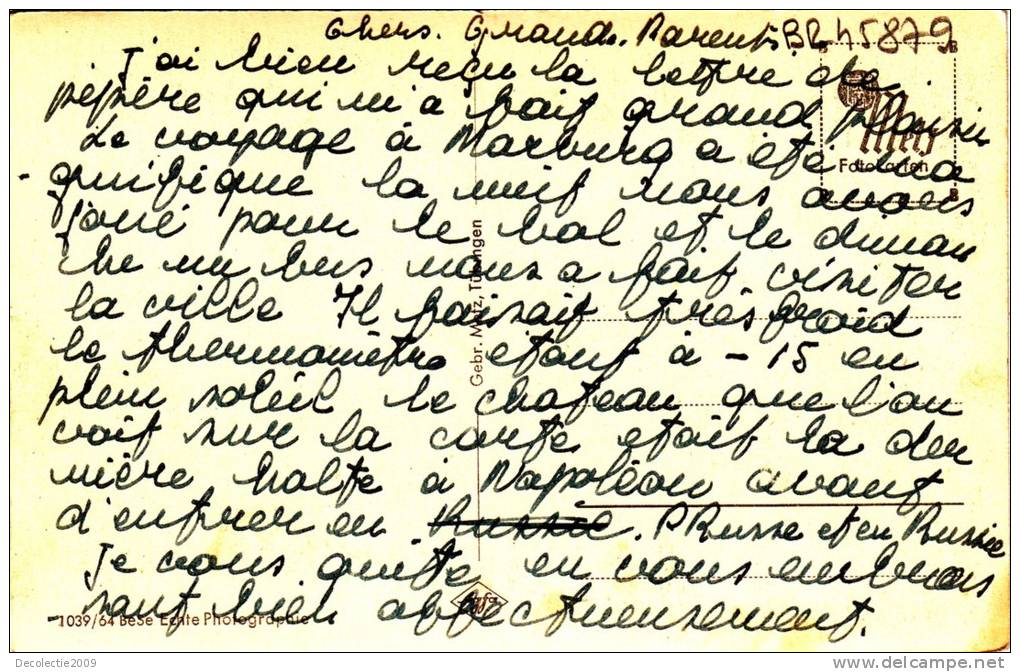 Chers. Grands. Parents BR45879
J'ai bien reçu la lettre de
pépère qui m'a fait grand plaisir
Le voyage à Marburg a été ma
gnifique la nuit nous avons
joué pour le bal et le diman
che un bus nous a fait visiter
la ville Il faisait très froid
le thermomètre etant à -15 en
plein soleil le chateau que l'on
voit sur la carte etait la der
nière halte à Napoléon avant
d'entrer en Russie. PRusse et en Russie
Je vous quitte en vous embras
sant bien affectueusement.
Fotokarten
Gebr. Metz, Tübingen
Agfa
1039/64 BeSe Echte Photographie
Decolectie2009
www.delcampe.net